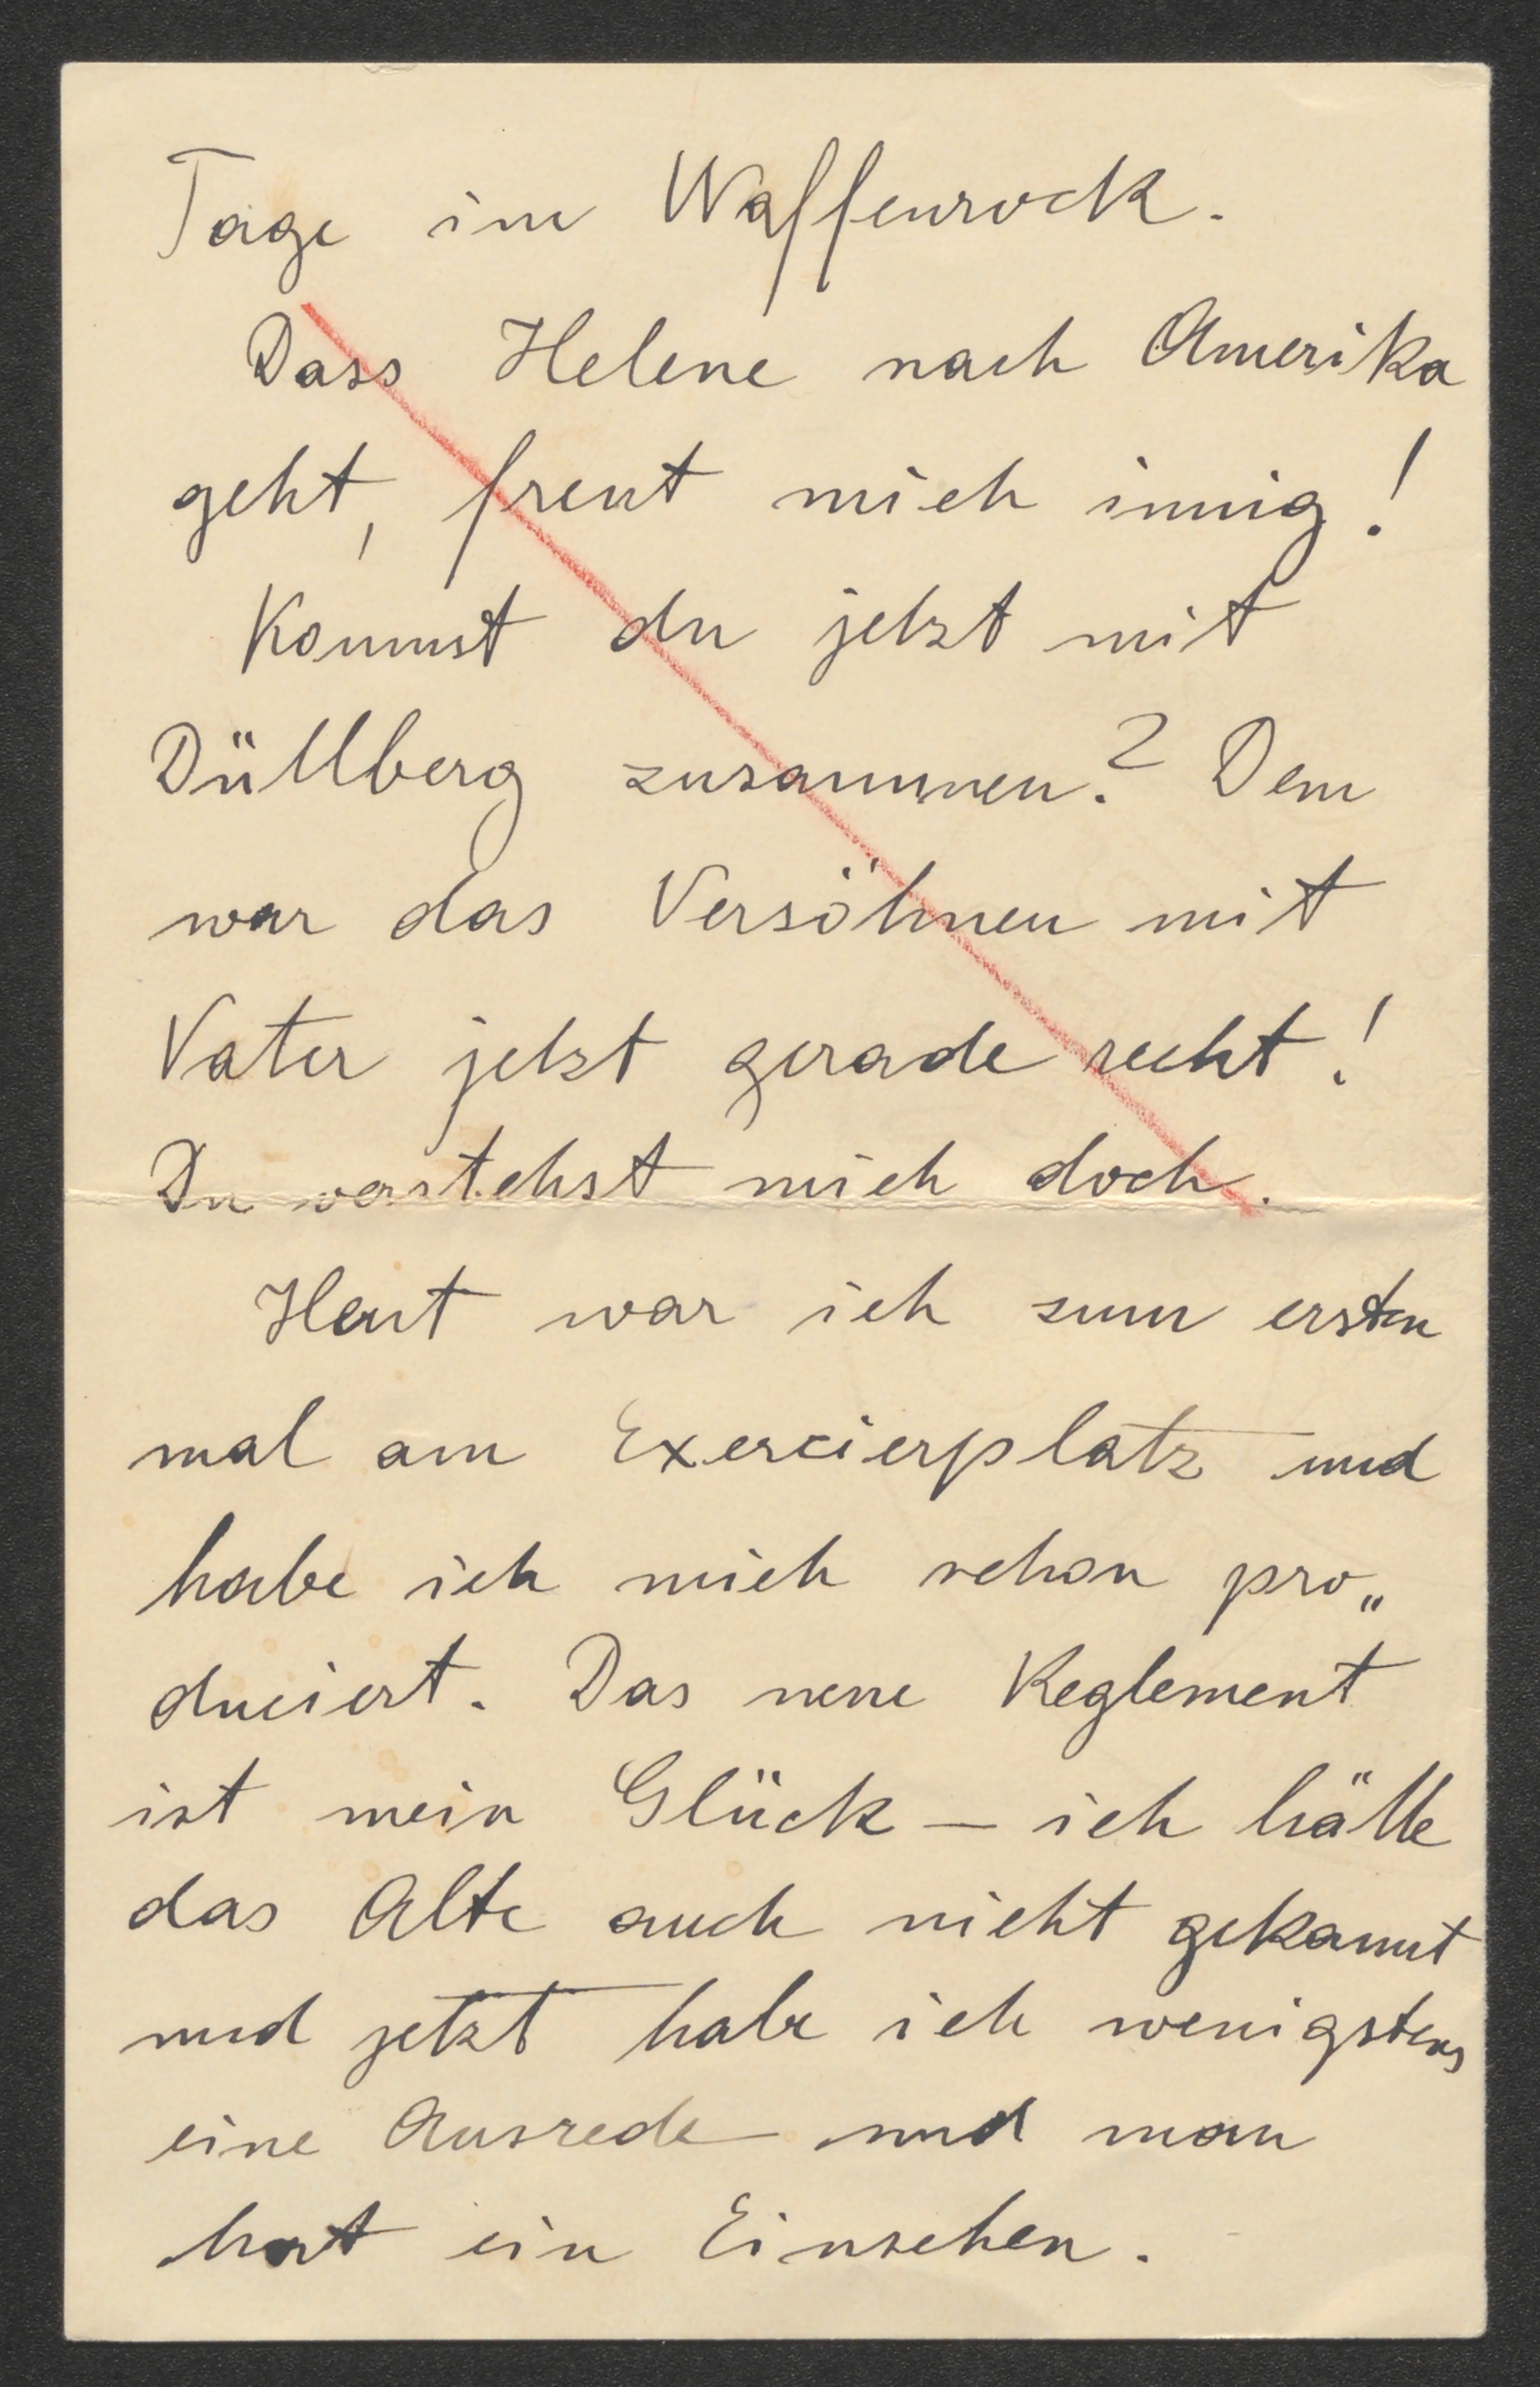 Tage im Waffenrock.
Dass Helene nach Amerika
geht, freut mich innig!
Kommst du jetzt mit
Düllberg zusammen? Dem
war das Versöhnen mit
Vater jetzt gerade recht!
Du verstehst mich doch.
Heut war ich zum ersten
mal am Exercierplatz und
habe ich mich schon pro„
duciert. Das neue Reglement
ist mein Glück – ich hätte
das Alte auch nicht gekannt
und jetzt habe ich wenigstens
eine Ausrede und man
hat ein Einsehen.